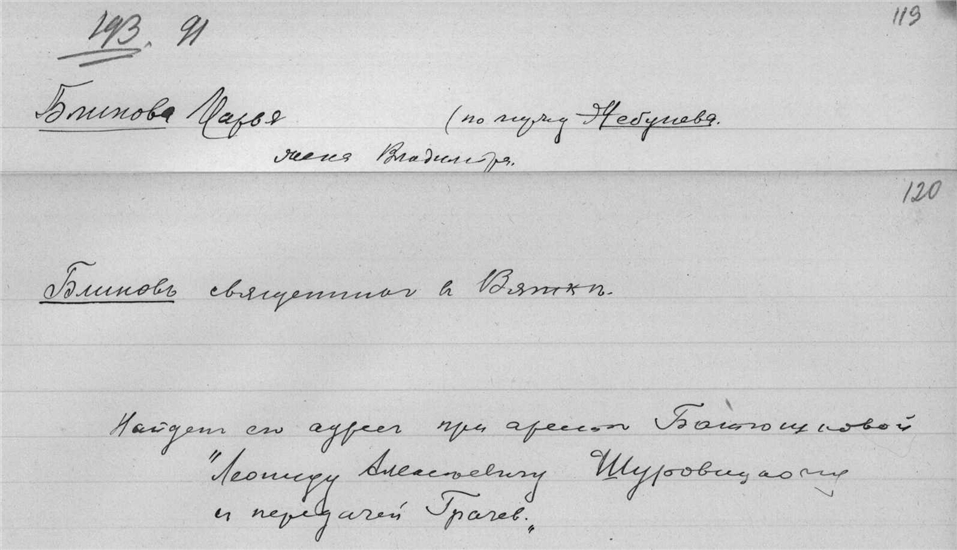 193. 91
119
Блинова Марья (по мужу Жебунева.
жена Владимира.
120
Блиновъ священник в Вяткѣ.
Найден его адрес при аресте Батюшковой
"Леониду Алексеевичу Щуровицкому
и передачей Грачев."